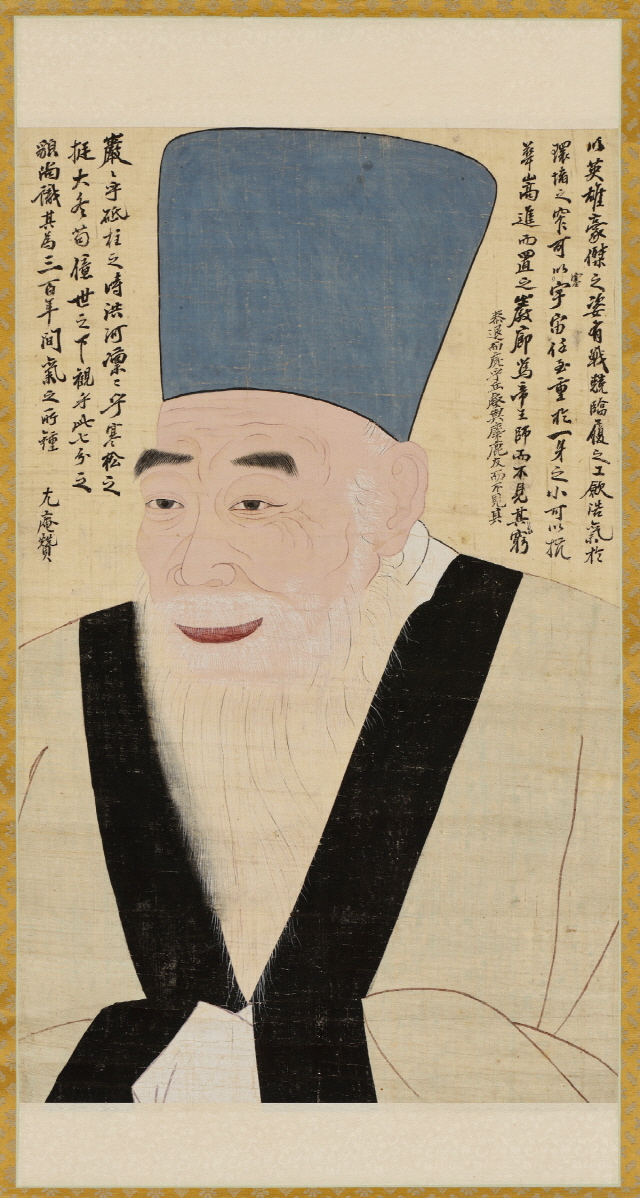 以英雄豪傑之姿有戰兢臨履之工斂浩氣於
環堵之窄可以塞宇宙任至重於一身之小可以抗
華嵩進而置之巖廊爲帝王師而不見其窮
泰退而處乎丘壑與麋鹿友而不見其
巖〻乎砥柱之峙洪河凜〻乎寒松之
挺大冬苟億世之下觀乎此七分之
貌尚識其爲三百年間氣之所鍾 尤庵贊